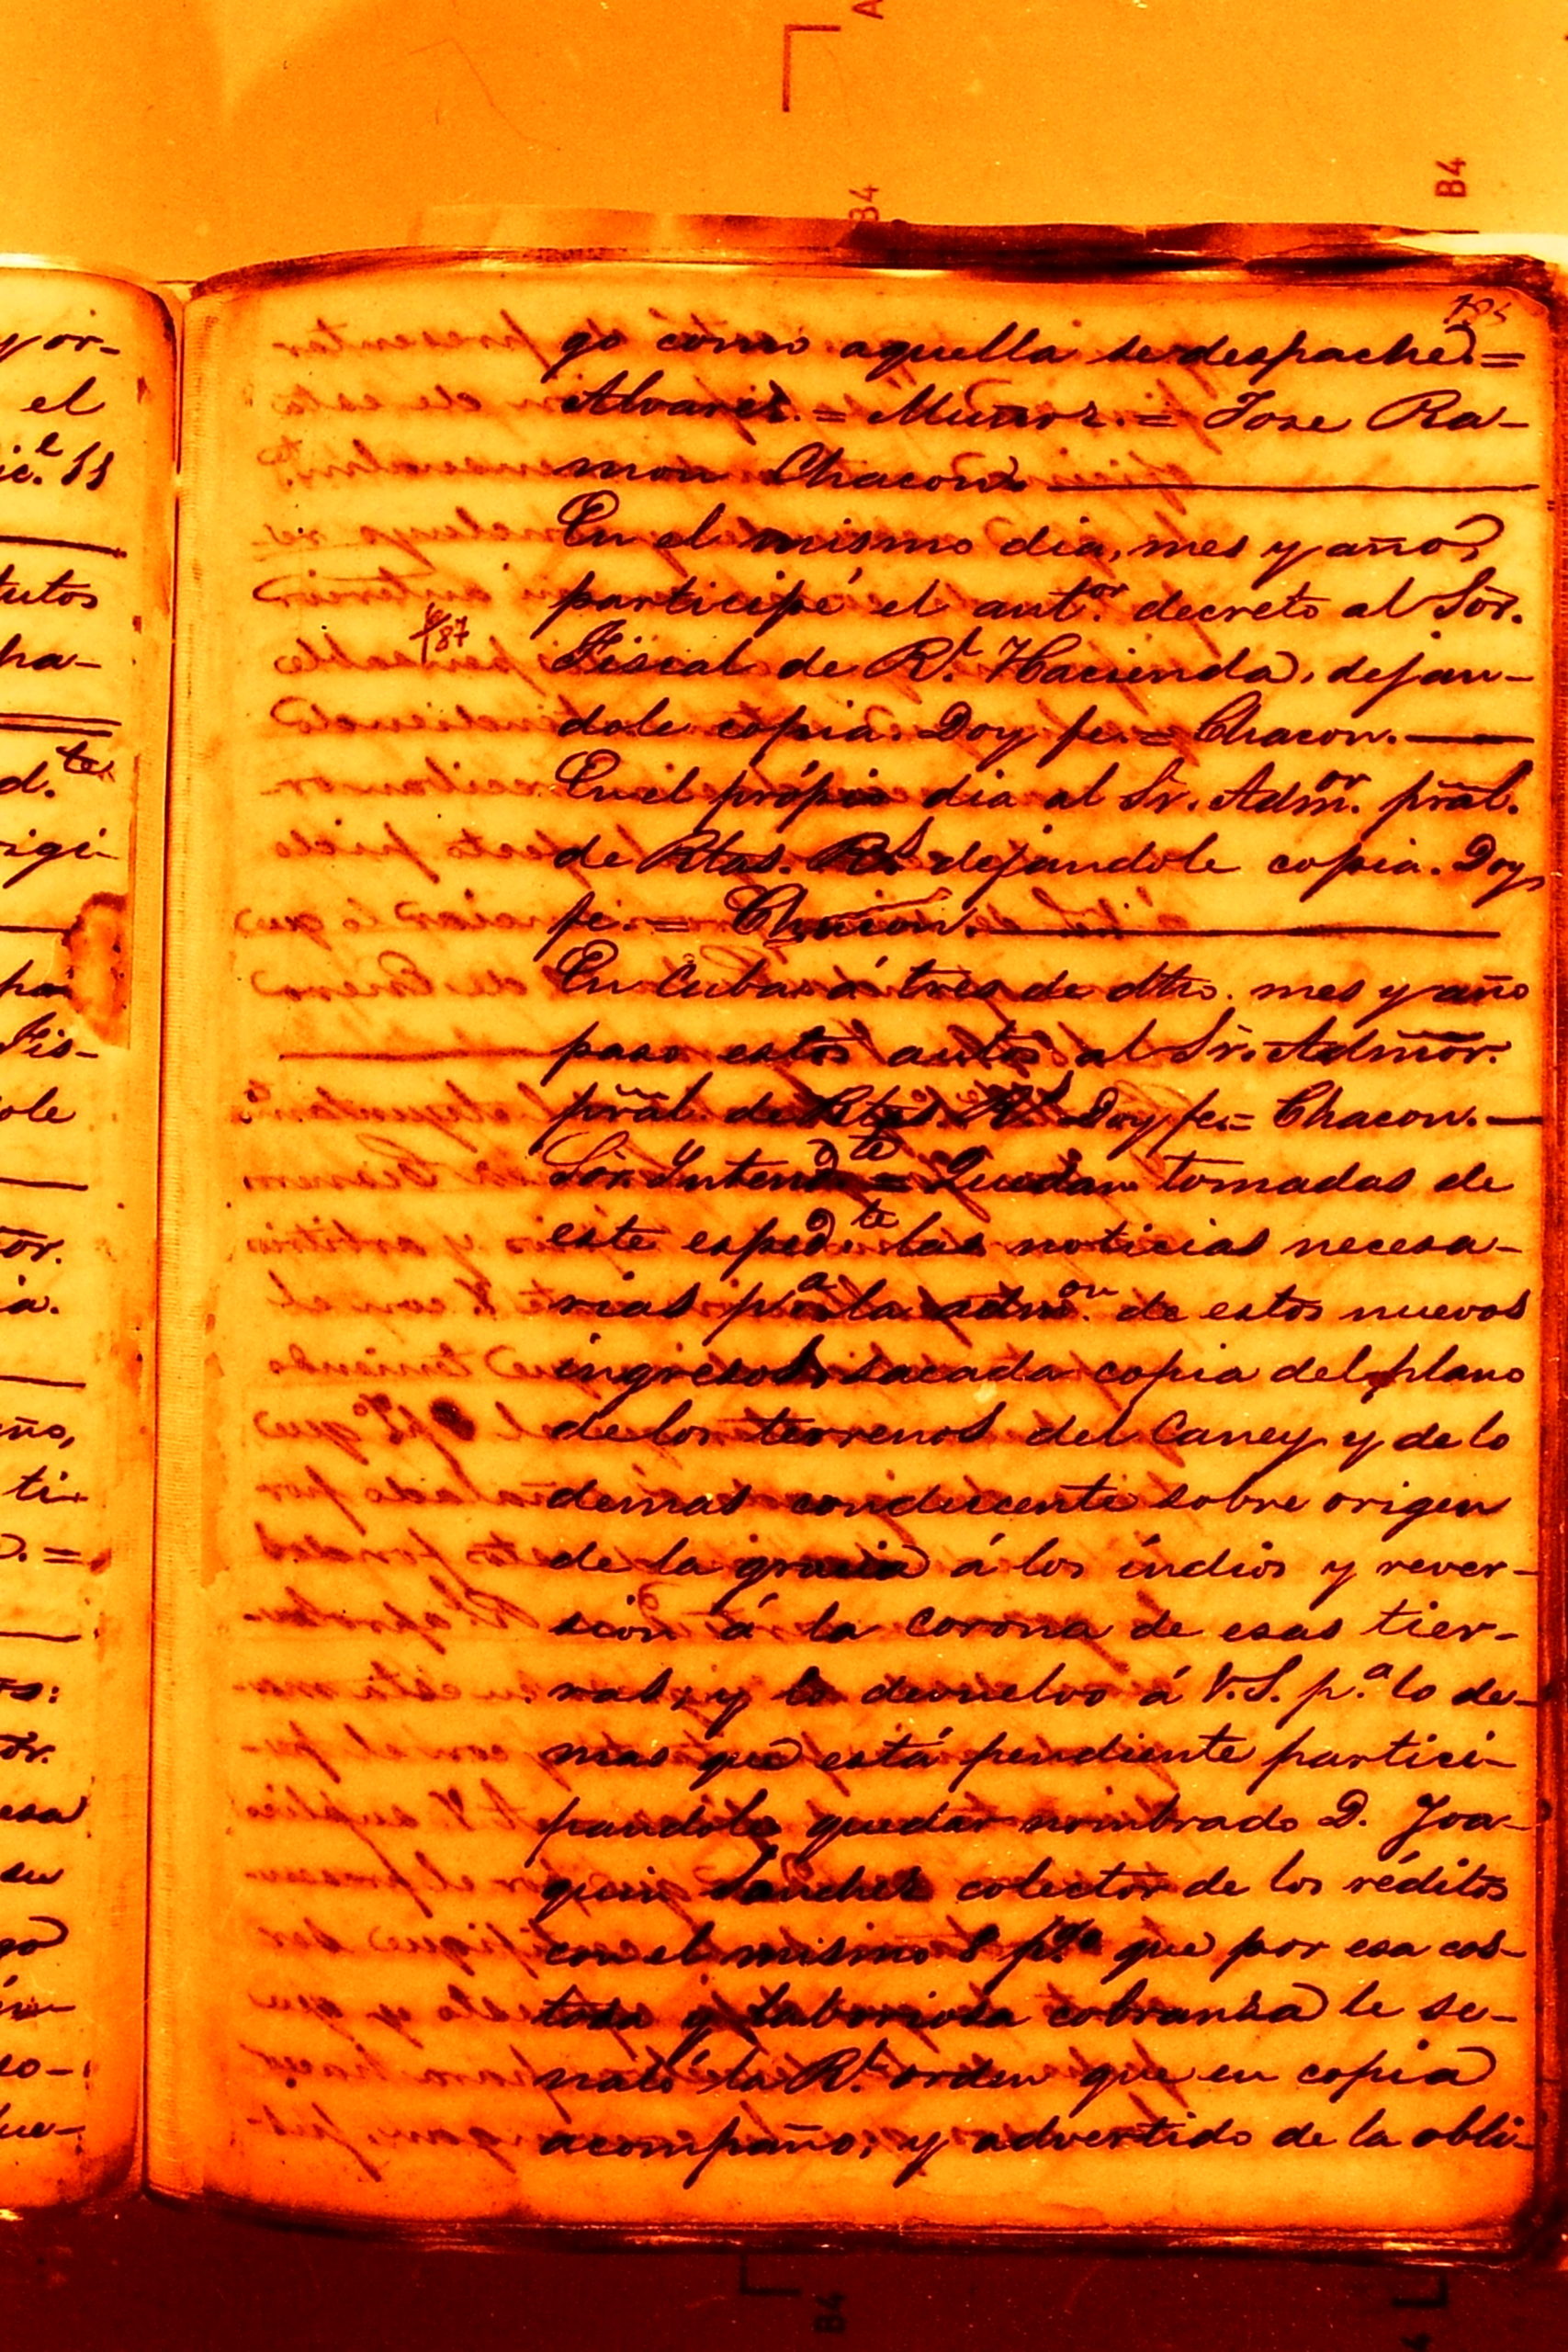 go como aquella se despache =
Alvarez. = Muñoz. = Jose Ra-
mon Chacon.
En el mismo dia, mes y año,
participé el ant.or decreto al Sõr.
Fiscal de R.l Hacienda, dejan-
dole copia. Doy fe. = Chacon.
En el própio dia al Sr. Adm.or prãl.
de Rtas. R.s dejandole copia. Doy
fe. = Chacon.
En Cuba á tres de dho. mes y año
paso estos autos al Sr. Admõr.
prãl de Rtas. R.s Doy fe = Chacon.
Sõr. Intend.te = Quedan tomadas de
este esped.te las noticias necesa-
rias p.a la adm.on de estos nuevos
ingresos, sacada copia del plano
de los terrenos del Caney y de lo
demas conducente sobre origen
de la gracia á los índios y rever-
sion á la Corona de esas tier-
ras, y lo devuelvo á V.S. p.a lo de-
mas que está pendiente partici-
pandole quedar nombrado D. Joa-
quin Sanchez colector de los réditos
con el mismo 8 p.% que por esa cos-
tosa y laboriosa cobranza le se-
ñaló la R.l orden que en copia
acompaño, y advertido de la obli-
87
B4
B4
B4
yor-
el
tutos
ha-
d.te
rigi-
Fis-
ole
tor.
ia.
ti-
esa
su